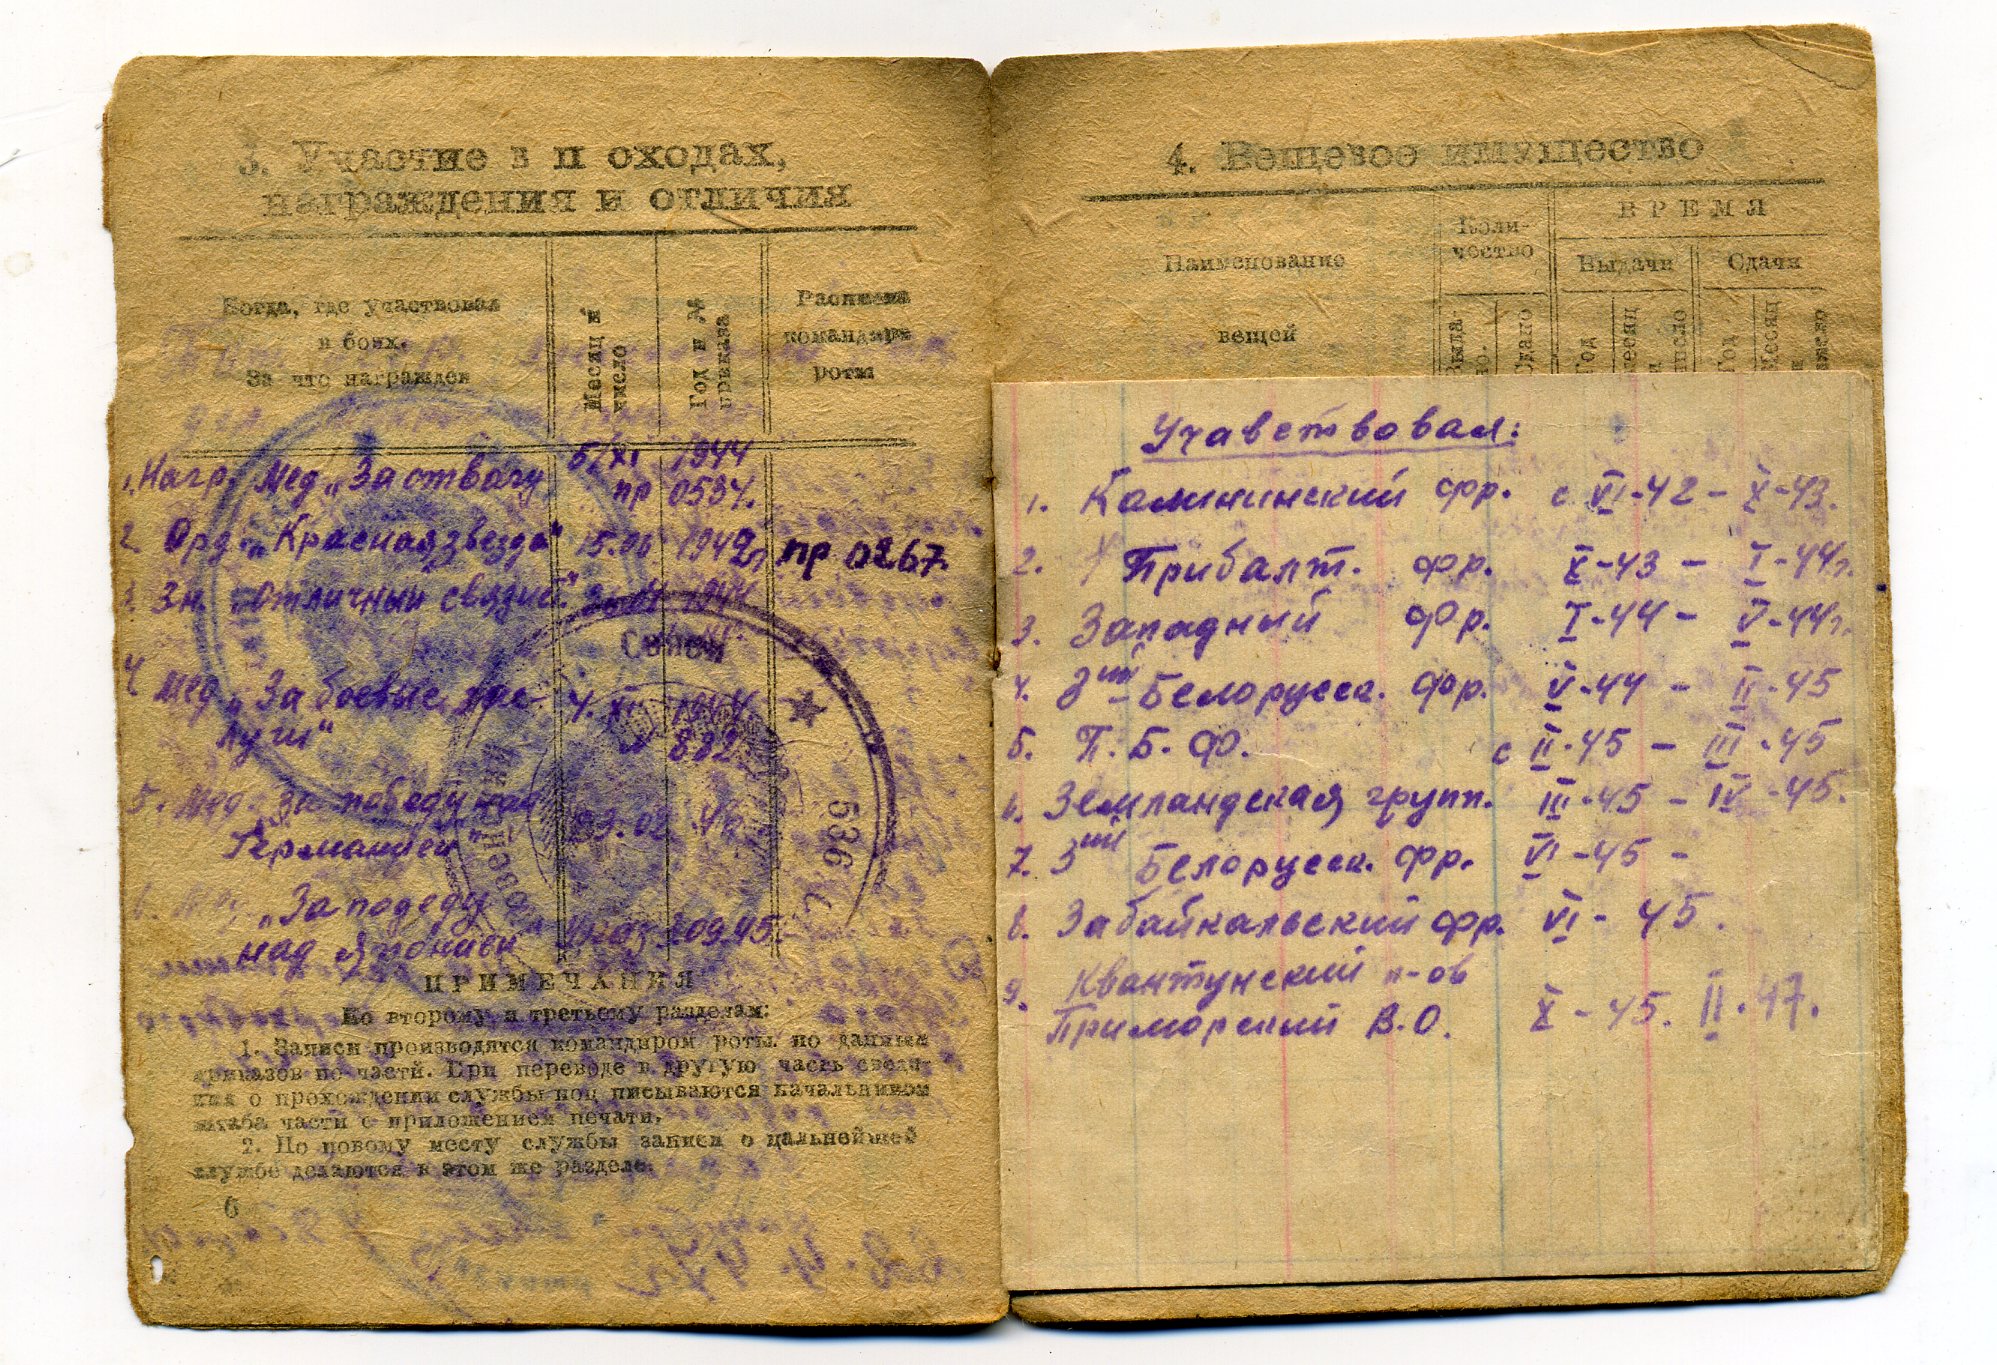 3. Участие в п оходах,
награждения и отличия
Когда, где участвовал
в боях.
За что награжден
Месяц и
число
Год и №
приказа
Расписка
командира
роты
1. Нагр. Мед. „За отвагу 5/XI 1944
пр 0534.
2. Орд. „Красная звезда" 15.06 1942г пр 0267.
3. Зн. „Отличный связист" 1944
4 Мед „За боевые зас- 4. XI 1944
луги" 882
5. Мед. „За победу над
Германией" 23.02 46
„За победу
над Японией" Указ 30945.
Совой
★
536
ПРИМЕЧАНИЯ
Ко второму и третьему разделам:
1. Записи производятся командиром роты по данным
приказов по части. При переводе в другую часть сведе-
ния о прохождении службы под писываются начальником
штаба части с приложением печати.
2. По новому месту службы записи о дальнейшей
службе делаются в этом же разделе.
6
4. Вещевое имущество
Наименование
вещей
Коли-
чество
ВРЕМЯ
Выдачи
Сдачи
Выда-
но.
Сдано
Год
Месяц
и
число
Год
Месяц
и
число
Учавствовал:
1. Калининский фр. с VI-42 – X-43.
2. Прибалт. фр. X-43 – I-44г.
3. Западный фр. I-44 – V-44г.
4. 3ий Белорусск. фр. V-44 – II-45
5. П. Б. Ф. с II-45 – III-45
6. Земландская групп. III-45 – IV-45.
7. 3ий Белорусск. фр. VI-45 –
8. Забайкальский фр. VI-45.
9. Квантунский п-ов
Приморский В.О. X-45. II-47.